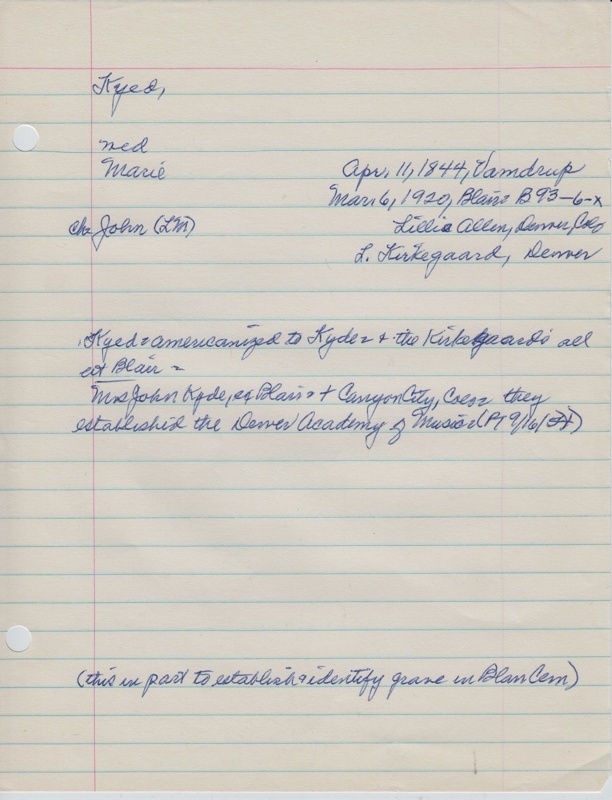 Kyed,
med
Marie Apr. 11, 1844, Vamdrup
Mar. 6, 1920, Blair = B93-6-x
ch: John (LM) Lillie Allen, Denver, Colo
L. Kirkegaard, Denver
Kyed = americanized to Kyde = + the Kirkegaards all
at Blair =
Mrs John Kyde, of Blair = + Canyon City, Colo = they
established the Denver Academy of Music = (PT 9/16/)
(this in part to establish + identify grave in Blair Cem)